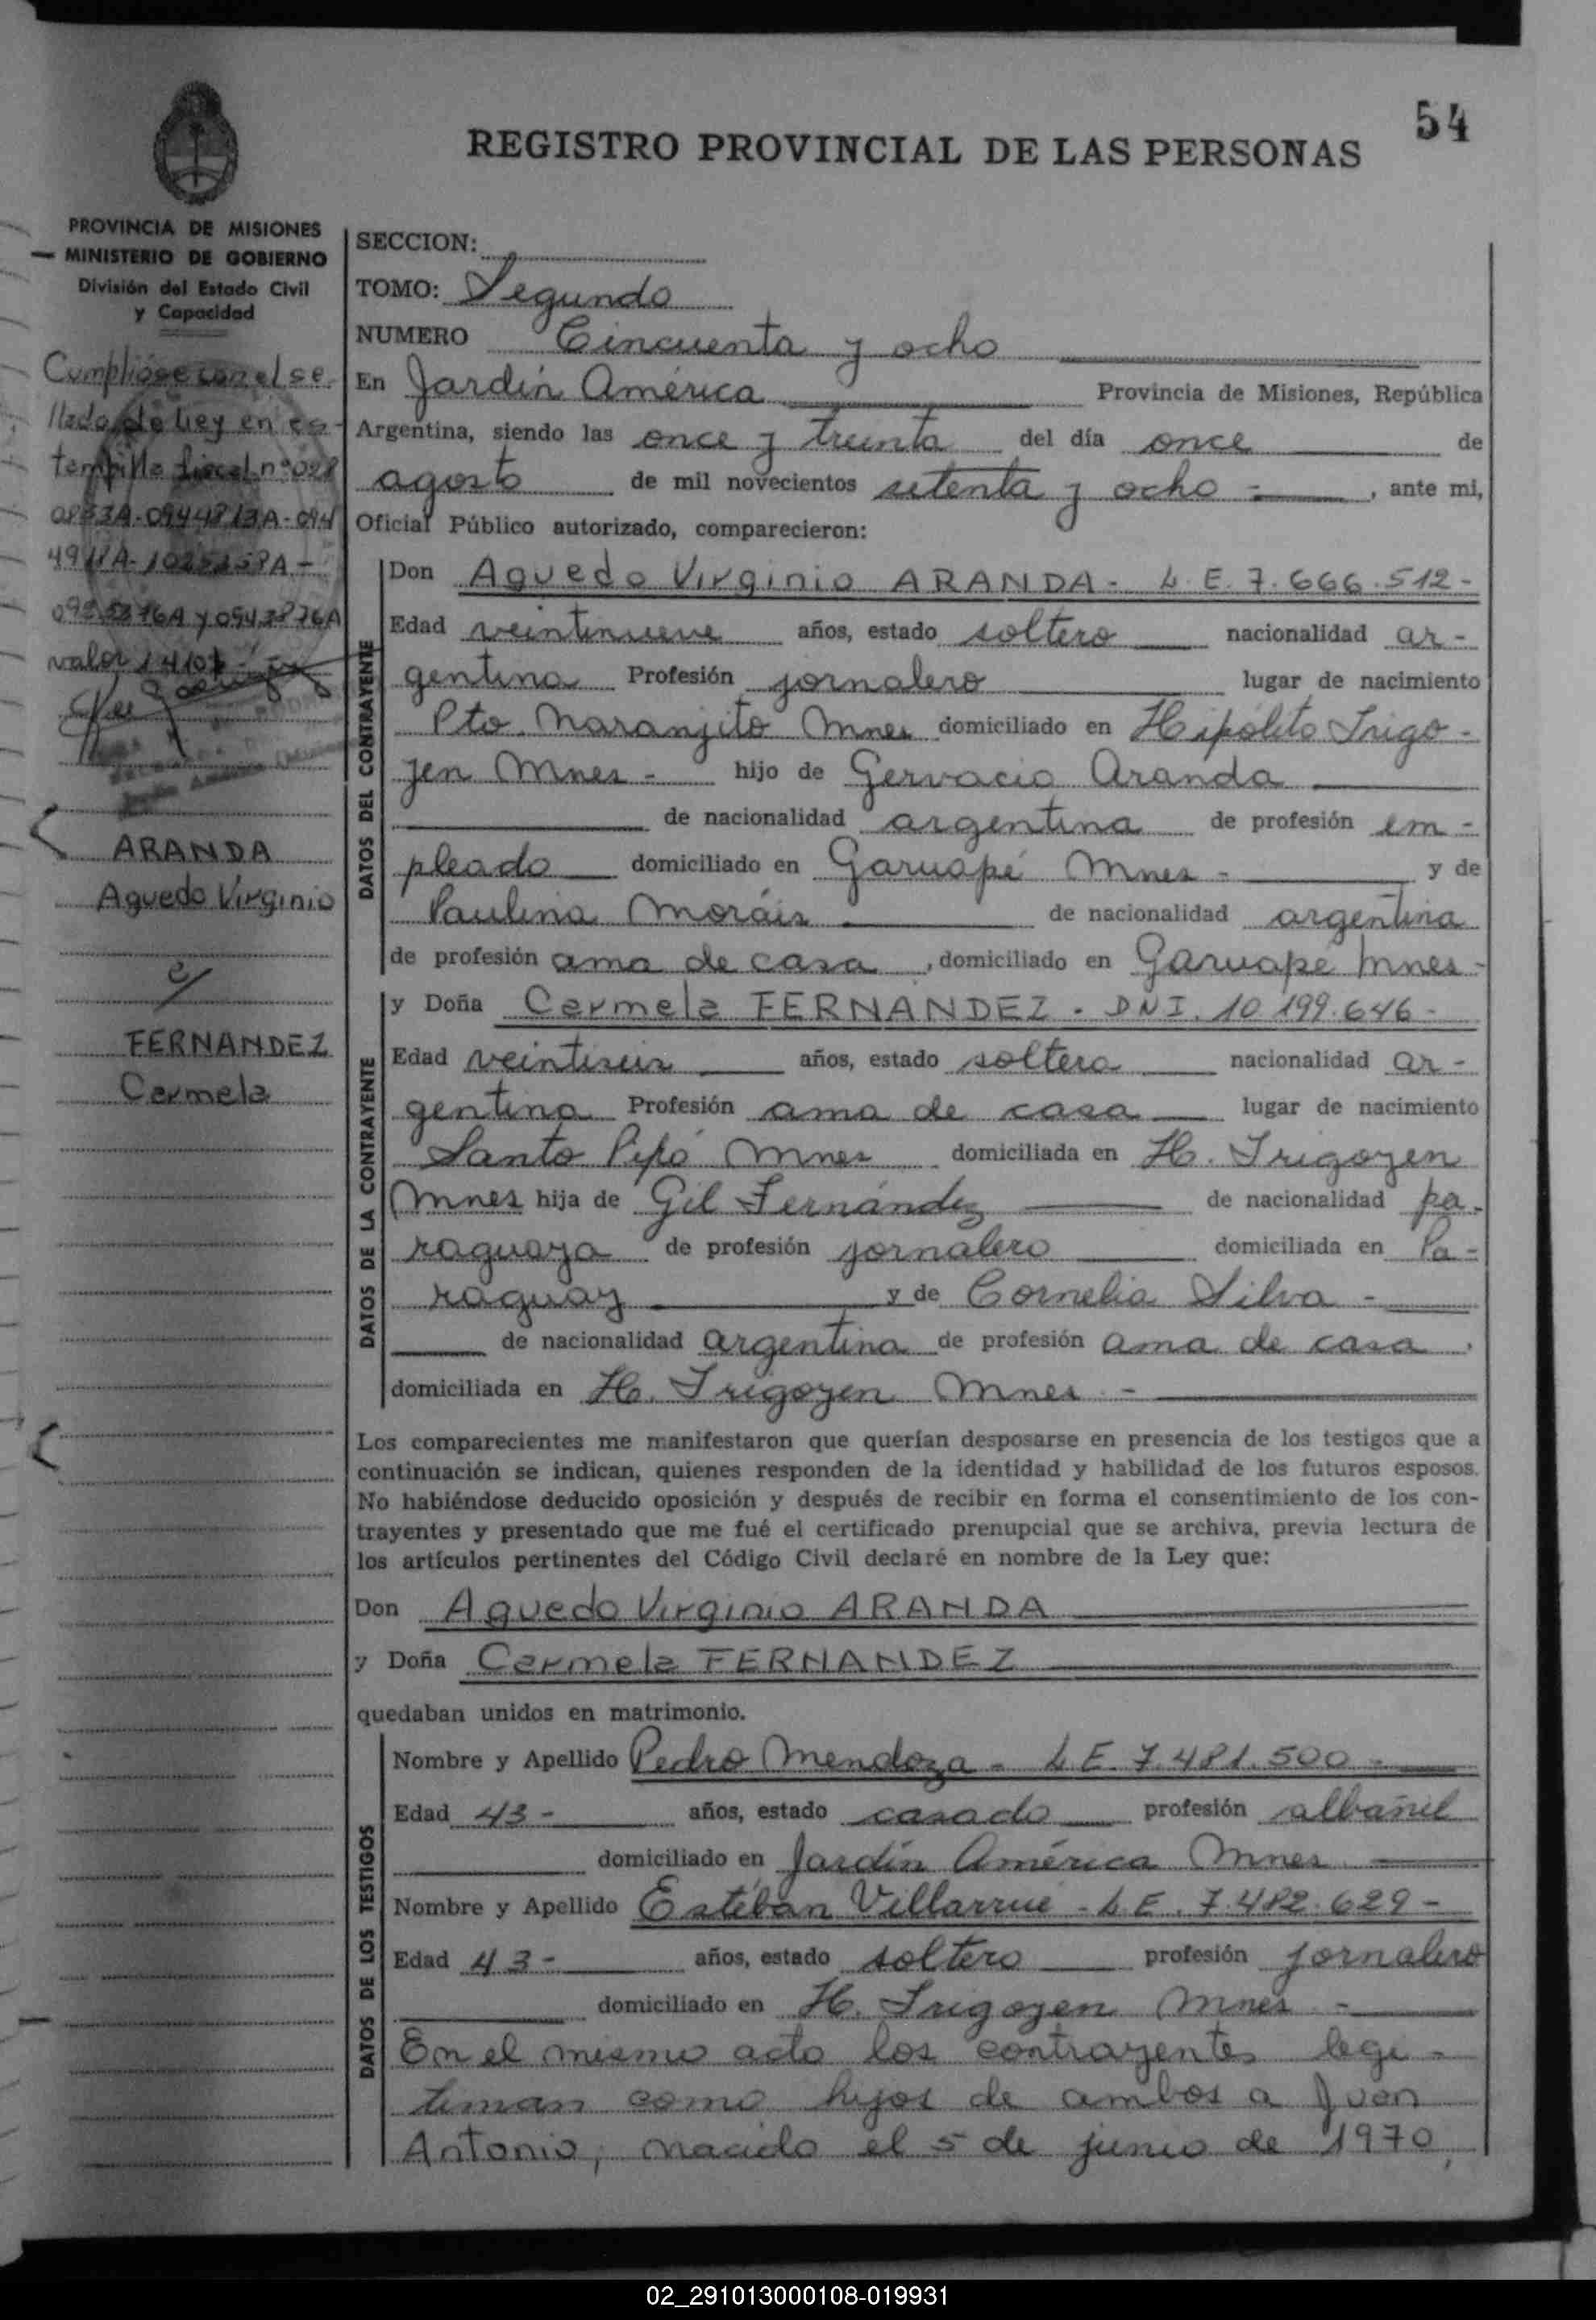 54
REGISTRO PROVINCIAL DE LAS PERSONAS
PROVINCIA DE MISIONES
MINISTERIO DE GOBIERNO
División del Estado Civil
y Capacidad
Cumplióse con el se-
llado de Ley en es-
tampilla fiscal nº 028
valor
ARANDA
Aguedo Virginio
c/
FERNANDEZ
Carmela
SECCION:
TOMO: Segundo
NUMERO Cincuenta y ocho
En Jardín América Provincia de Misiones, República
Argentina, siendo las once y treinta del día once de
agosto de mil novecientos setenta y ocho -, ante mi,
Oficial Público autorizado, comparecieron:
DATOS DEL CONTRAYENTE
Don Aguedo Virginio ARANDA - L. E. 7.666.512-
Edad veintinueve años, estado soltero nacionalidad ar-
gentina Profesión jornalero lugar de nacimiento
Pto. Naranjito Mnes domiciliado en Hipólito Irigo-
yen Mnes - hijo de Gervacio Aranda
de nacionalidad argentina de profesión em-
pleado domiciliado en Garuapé Mnes - y de
Paulina Moráis de nacionalidad argentina
de profesión ama de casa, domiciliado en Garuapé Mnes-
DATOS DE LA CONTRAYENTE
y Doña Carmela FERNANDEZ - DNI. 10.199.646-
Edad veintiseis años, estado soltera nacionalidad ar-
gentina Profesión ama de casa lugar de nacimiento
Santo Pipó Mnes domiciliada en H. Irigoyen
Mnes hija de Gil Fernández de nacionalidad pa-
raguaya de profesión jornalero domiciliada en Pa-
raguay y de Cornelia Silva -
de nacionalidad argentina de profesión ama de casa,
domiciliada en H. Irigoyen Mnes -
Los comparecientes me manifestaron que querían desposarse en presencia de los testigos que a
continuación se indican, quienes responden de la identidad y habilidad de los futuros esposos.
No habiéndose deducido oposición y después de recibir en forma el consentimiento de los con-
trayentes y presentado que me fué el certificado prenupcial que se archiva, previa lectura de
los artículos pertinentes del Código Civil declaré en nombre de la Ley que:
Don Aguedo Virginio ARANDA
y Doña Carmela FERNANDEZ
quedaban unidos en matrimonio.
DATOS DE LOS TESTIGOS
Nombre y Apellido Pedro Mendoza - L E. 7.481.500 -
Edad 43 - años, estado casado profesión albañil
domiciliado en Jardín América Mnes
Nombre y Apellido Estéban Villarrué - L E. 7.482.629 -
Edad 43 - años, estado soltero profesión jornalero
domiciliado en H. Irigoyen Mnes -
En el mismo acto los contrayentes legi-
timan como hijos de ambos a Juan
Antonio, nacido el 5 de junio de 1970,
02_291013000108-019931